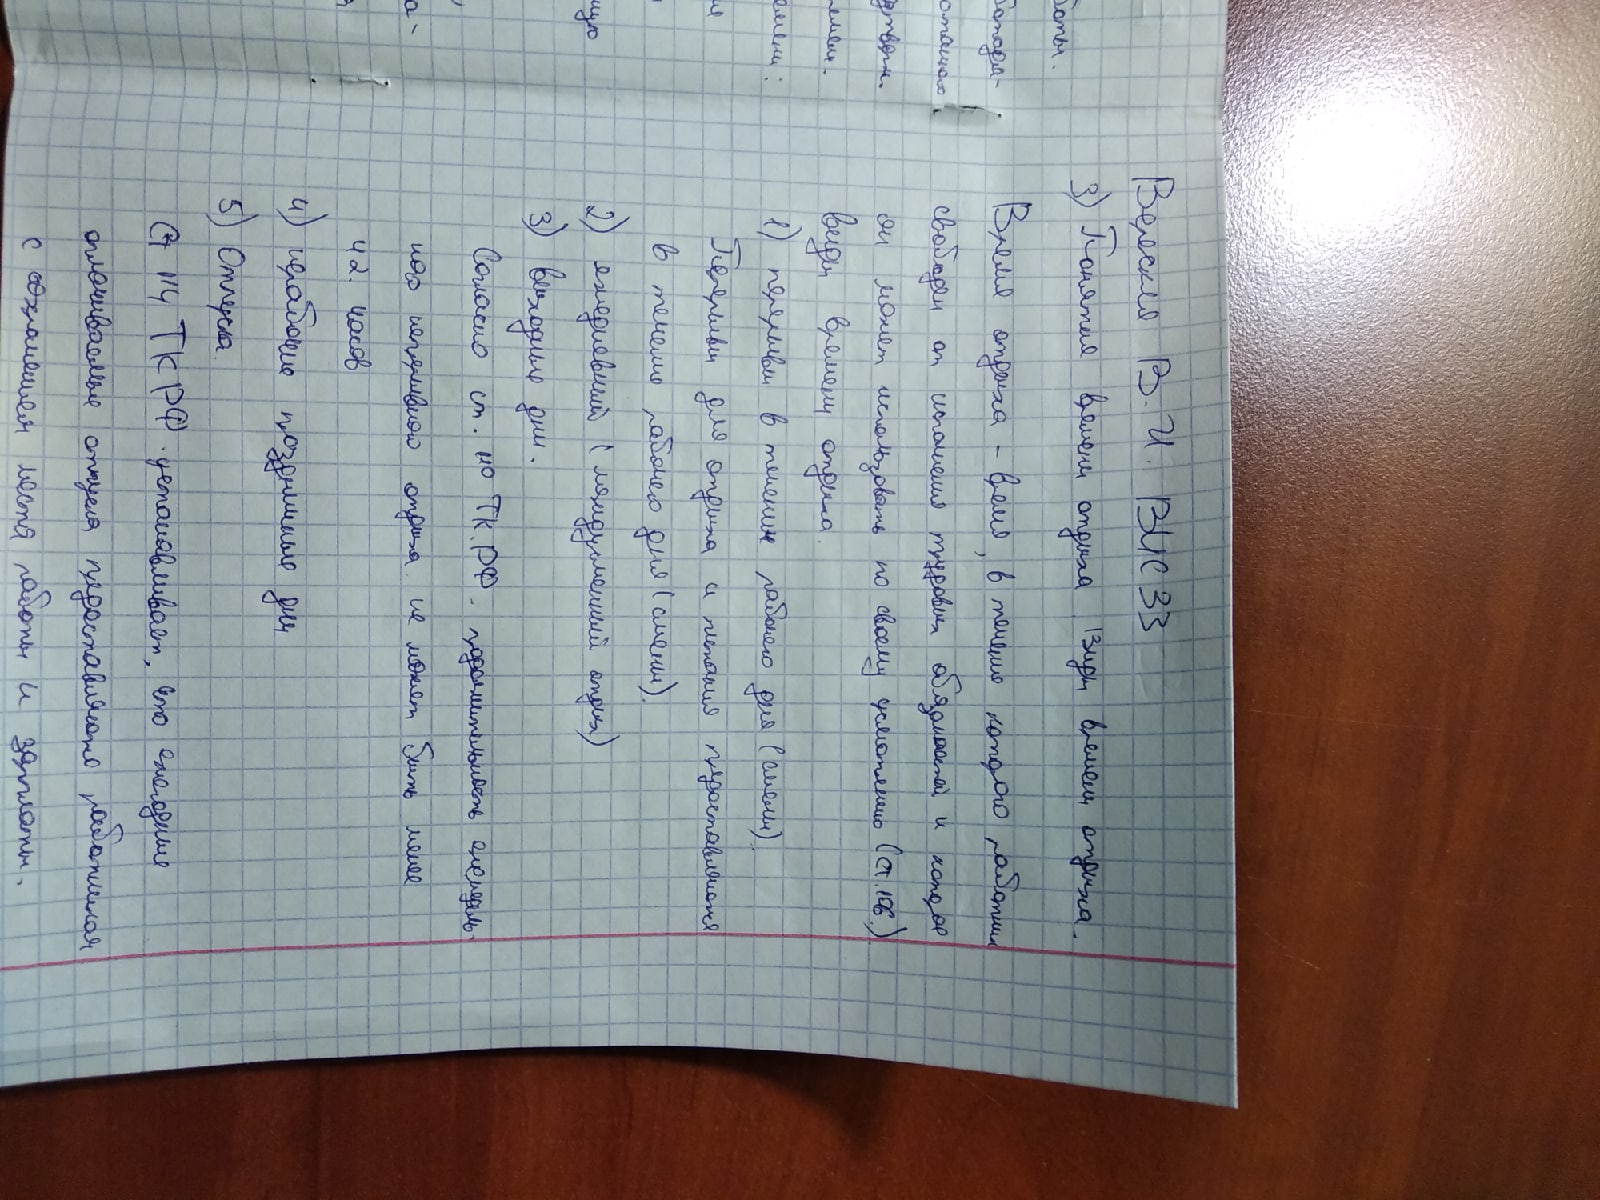 Верескля В. И. ВИС 33
3) Понятие времени отдыха. Виды времени отдыха.
Время отдыха - время, в течение которого работник
свободен от исполнения трудовых обязанностей и которое
он может использовать по своему усмотрению (ст.106.)
виды времени отдыха.
1) перерывы в течение рабочего дня (смены).
Перерывы для отдыха и питания предоставляются
в течение рабочего дня (смены).
2) ежедневный (междусменный отдых)
3) выходные дни.
Согласно ст. 110 ТК.РФ. продолжительность еженедель-
ного непрерывного отдыха не может быть менее
42 часов
4) нерабочие праздничные дни
5) Отпуска.
Ст 114 ТК РФ. устанавливает, что ежегодные
оплачиваемые отпуска предоставляются работникам
с сохранением места работы и зарплаты.
боты.